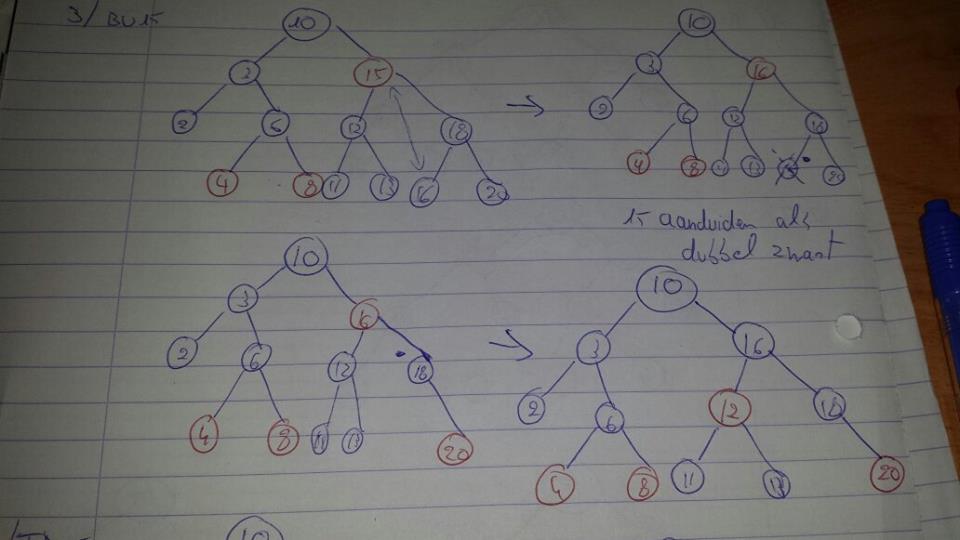 3/
10
3 15
2 6 12 18
4 8 11 13 16 20
10
3 16
2 6 12 18
4 8 11 13 20
15 aanduiden als
dubbel zwart
10
3 16
2 6 12 18
4 8 11 13 20
10
3 16
2 6 12 18
4 8 11 13 20
10